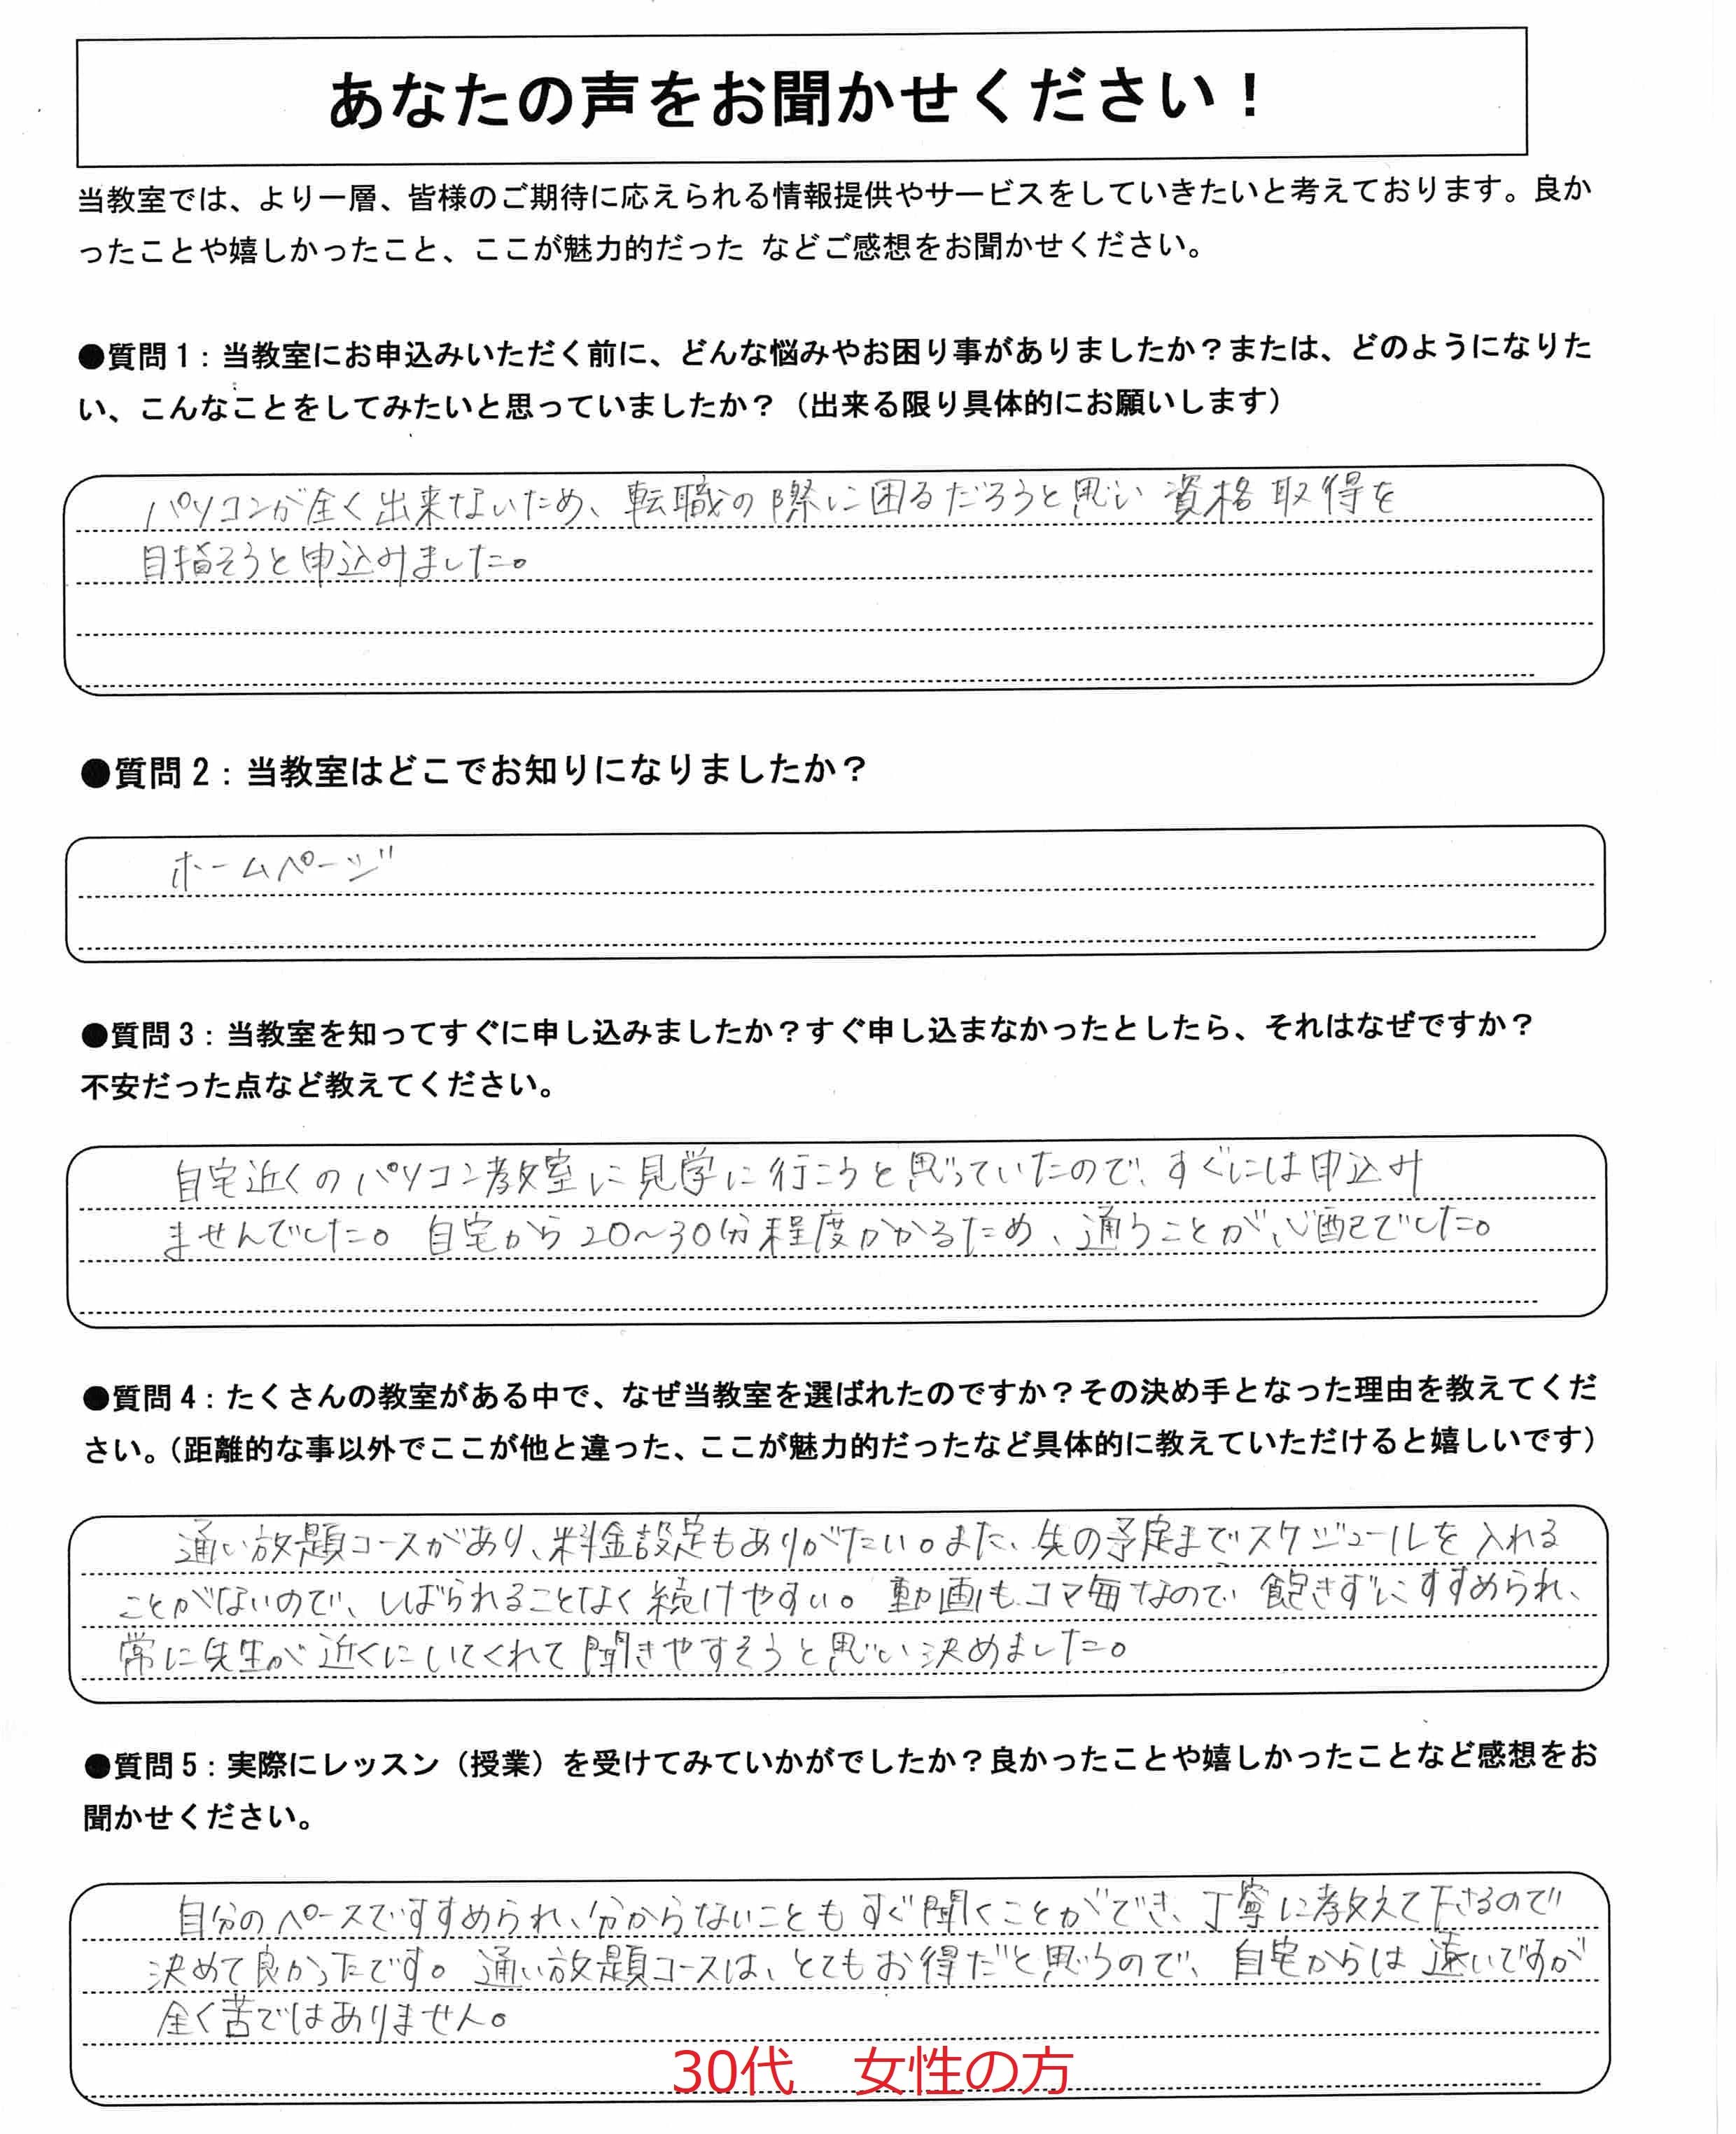 あなたの声をお聞かせください！
当教室では、より一層、皆様のご期待に応えられる情報提供やサービスをしていきたいと考えております。良か
ったことや嬉しかったこと、ここが魅力的だった などご感想をお聞かせください。
●質問1：当教室にお申込みいただく前に、どんな悩みやお困り事がありましたか？または、どのようになりた
い、こんなことをしてみたいと思っていましたか？（出来る限り具体的にお願いします）
パソコンが全く出来ないため、転職の際に困るだろうと思い 資格取得を
目指そうと申込みました。
●質問2：当教室はどこでお知りになりましたか？
ホームページ
●質問3：当教室を知ってすぐに申し込みましたか？すぐ申し込まなかったとしたら、それはなぜですか？
不安だった点など教えてください。
自宅近くのパソコン教室に見学に行こうと思っていたので、すぐには申込み
ませんでした。自宅から20〜30分程度かかるため、通うことが心配でした。
●質問4：たくさんの教室がある中で、なぜ当教室を選ばれたのですか？その決め手となった理由を教えてくだ
さい。（距離的な事以外でここが他と違った、ここが魅力的だったなど具体的に教えていただけると嬉しいです）
通い放題コースがあり、料金設定もありがたい。また、先の予定までスケジュールを入れる
ことがないので、しばられることなく続けやすい。動画もコマ毎なので 飽きずにすすめられ、
常に先生が近くにいてくれて聞きやすそうと思い決めました。
●質問5：実際にレッスン（授業）を受けてみていかがでしたか？良かったことや嬉しかったことなど感想をお
聞かせください。
自分のペースですすめられ、分からないこともすぐ聞くことができ、丁寧に教えて下さるので
決めて良かったです。通い放題コースは、とてもお得だと思うので、自宅からは遠いですが
全く苦ではありません。
30代　女性の方